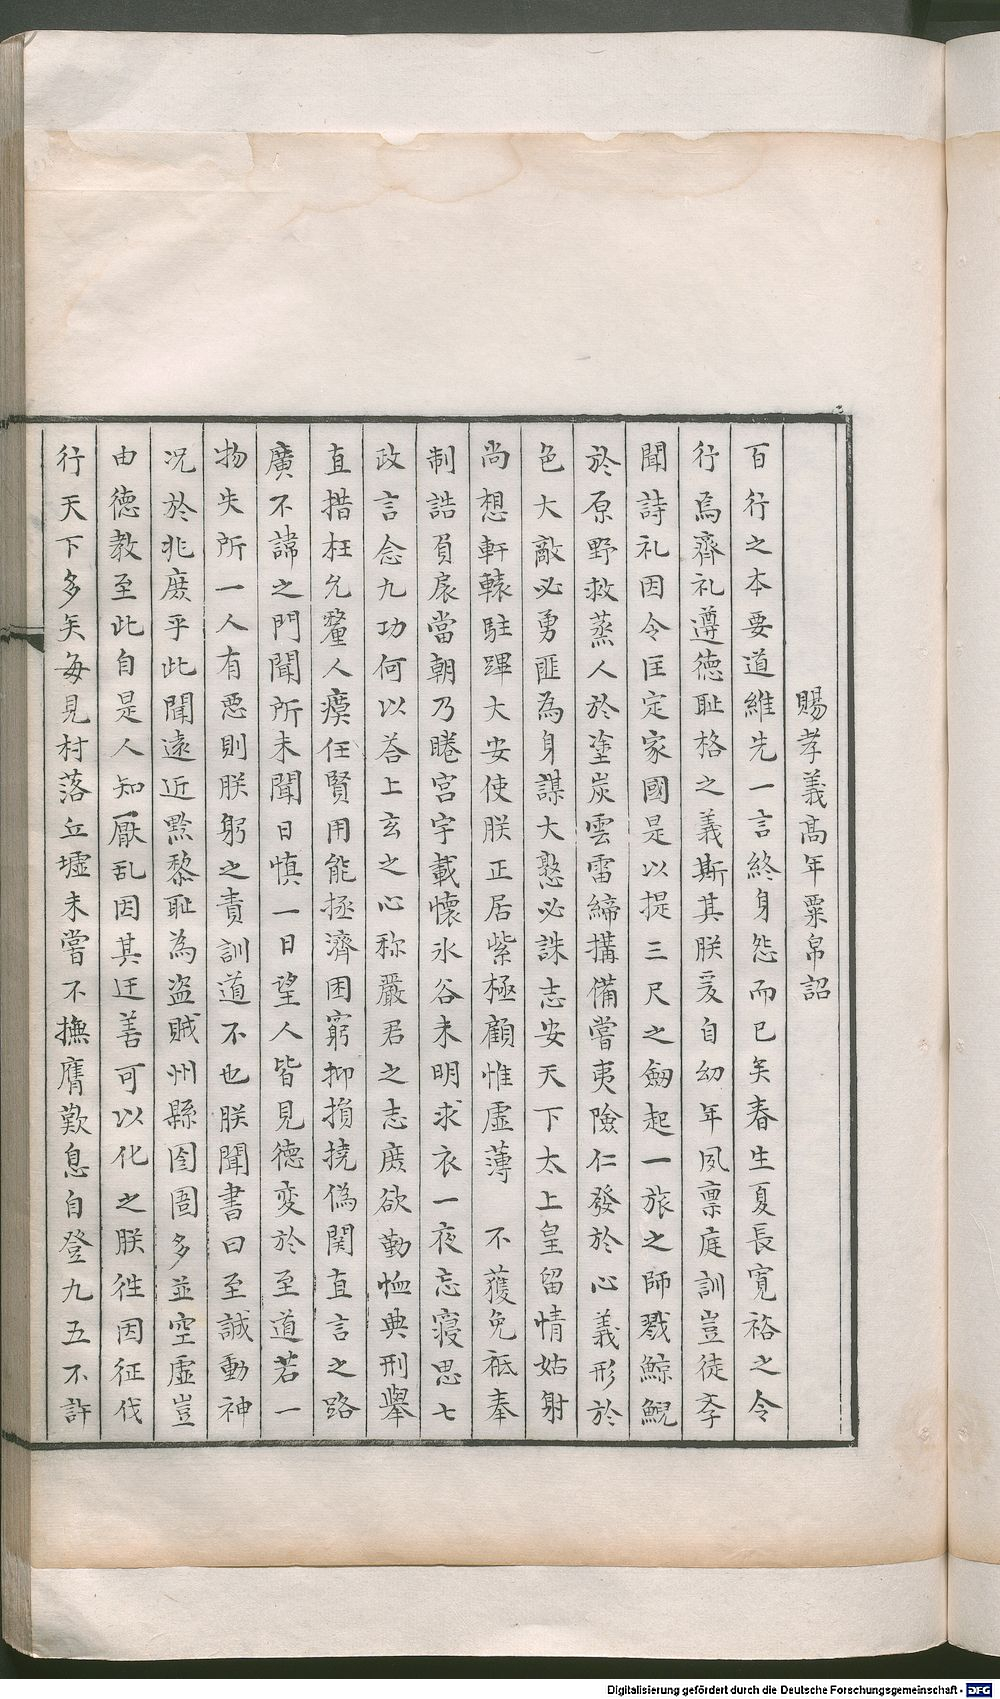 賜孝義髙年粟帛詔
百行之本要道維先一言終身怨而已矣春生夏長寛裕之令
行焉齊礼遵德耻格之義斯其朕爰自幼年夙禀庭訓豈徒孝
聞詩礼因令匡定家國是以提三尺之劔起一旅之師戮鯨鯢
於原野救蒸人於塗炭雲雷締搆備嘗夷險仁發於心義形於
色大敵必勇匪為身謀大憝必誅志安天下太上皇留情姑射
尚想軒轅駐蹕大安使朕正居紫極顧惟虛薄 不獲免祗奉
制誥負扆當朝乃睠宮宇載懷氷谷未明求衣一夜忘寢思七
政言念九功何以荅上玄之心称嚴君之志庻欲勤恤典刑舉
直措枉允釐人瘼任賢用能拯濟困窮抑損撓僞開直言之路
廣不諱之門聞所未聞日慎一日望人皆見德変於至道若一
物失所一人有惡則朕躬之責訓道不也朕聞書曰至誠動神
况於兆庻乎此聞遠近黔黎耻為盗賊州縣囹圄多並空虛豈
由德教至此自是人知厭乱因其迁善可以化之朕徃因征伐
行天下多矣每見村落丘墟未嘗不撫膺歎息自登九五不許
Digitalisierung gefördert durch die Deutsche Forschungsgemeinschaft - DFG